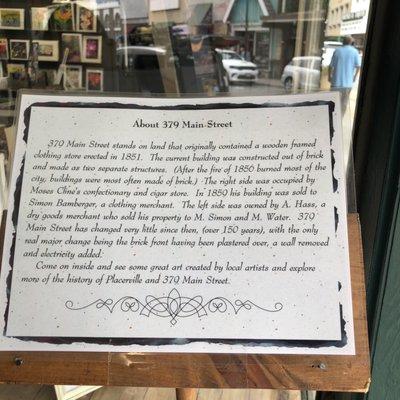 About 379 Main Street
379 Main Street stands on land that originally contained a wooden framed
clothing store erected in 1851. The current building was constructed out of brick
and made as two separate structures. (After the fire of 1850 burned most of the
city, buildings were most often made of brick.) The right side was occupied by
Moses Cline's confectionary and cigar store. In 1859 his building was sold to
Simon Bamberger, a clothing merchant. The left side was owned by A. Hass, a
dry goods merchant who sold his property to M. Simon and M. Water. 379
Main Street has changed very little since then, (over 150 years), with the only
real major change being the brick front having been plastered over, a wall removed
and electricity added.
Come on inside and see some great art created by local artists and explore
more of the history of Placerville and 379 Main Street.